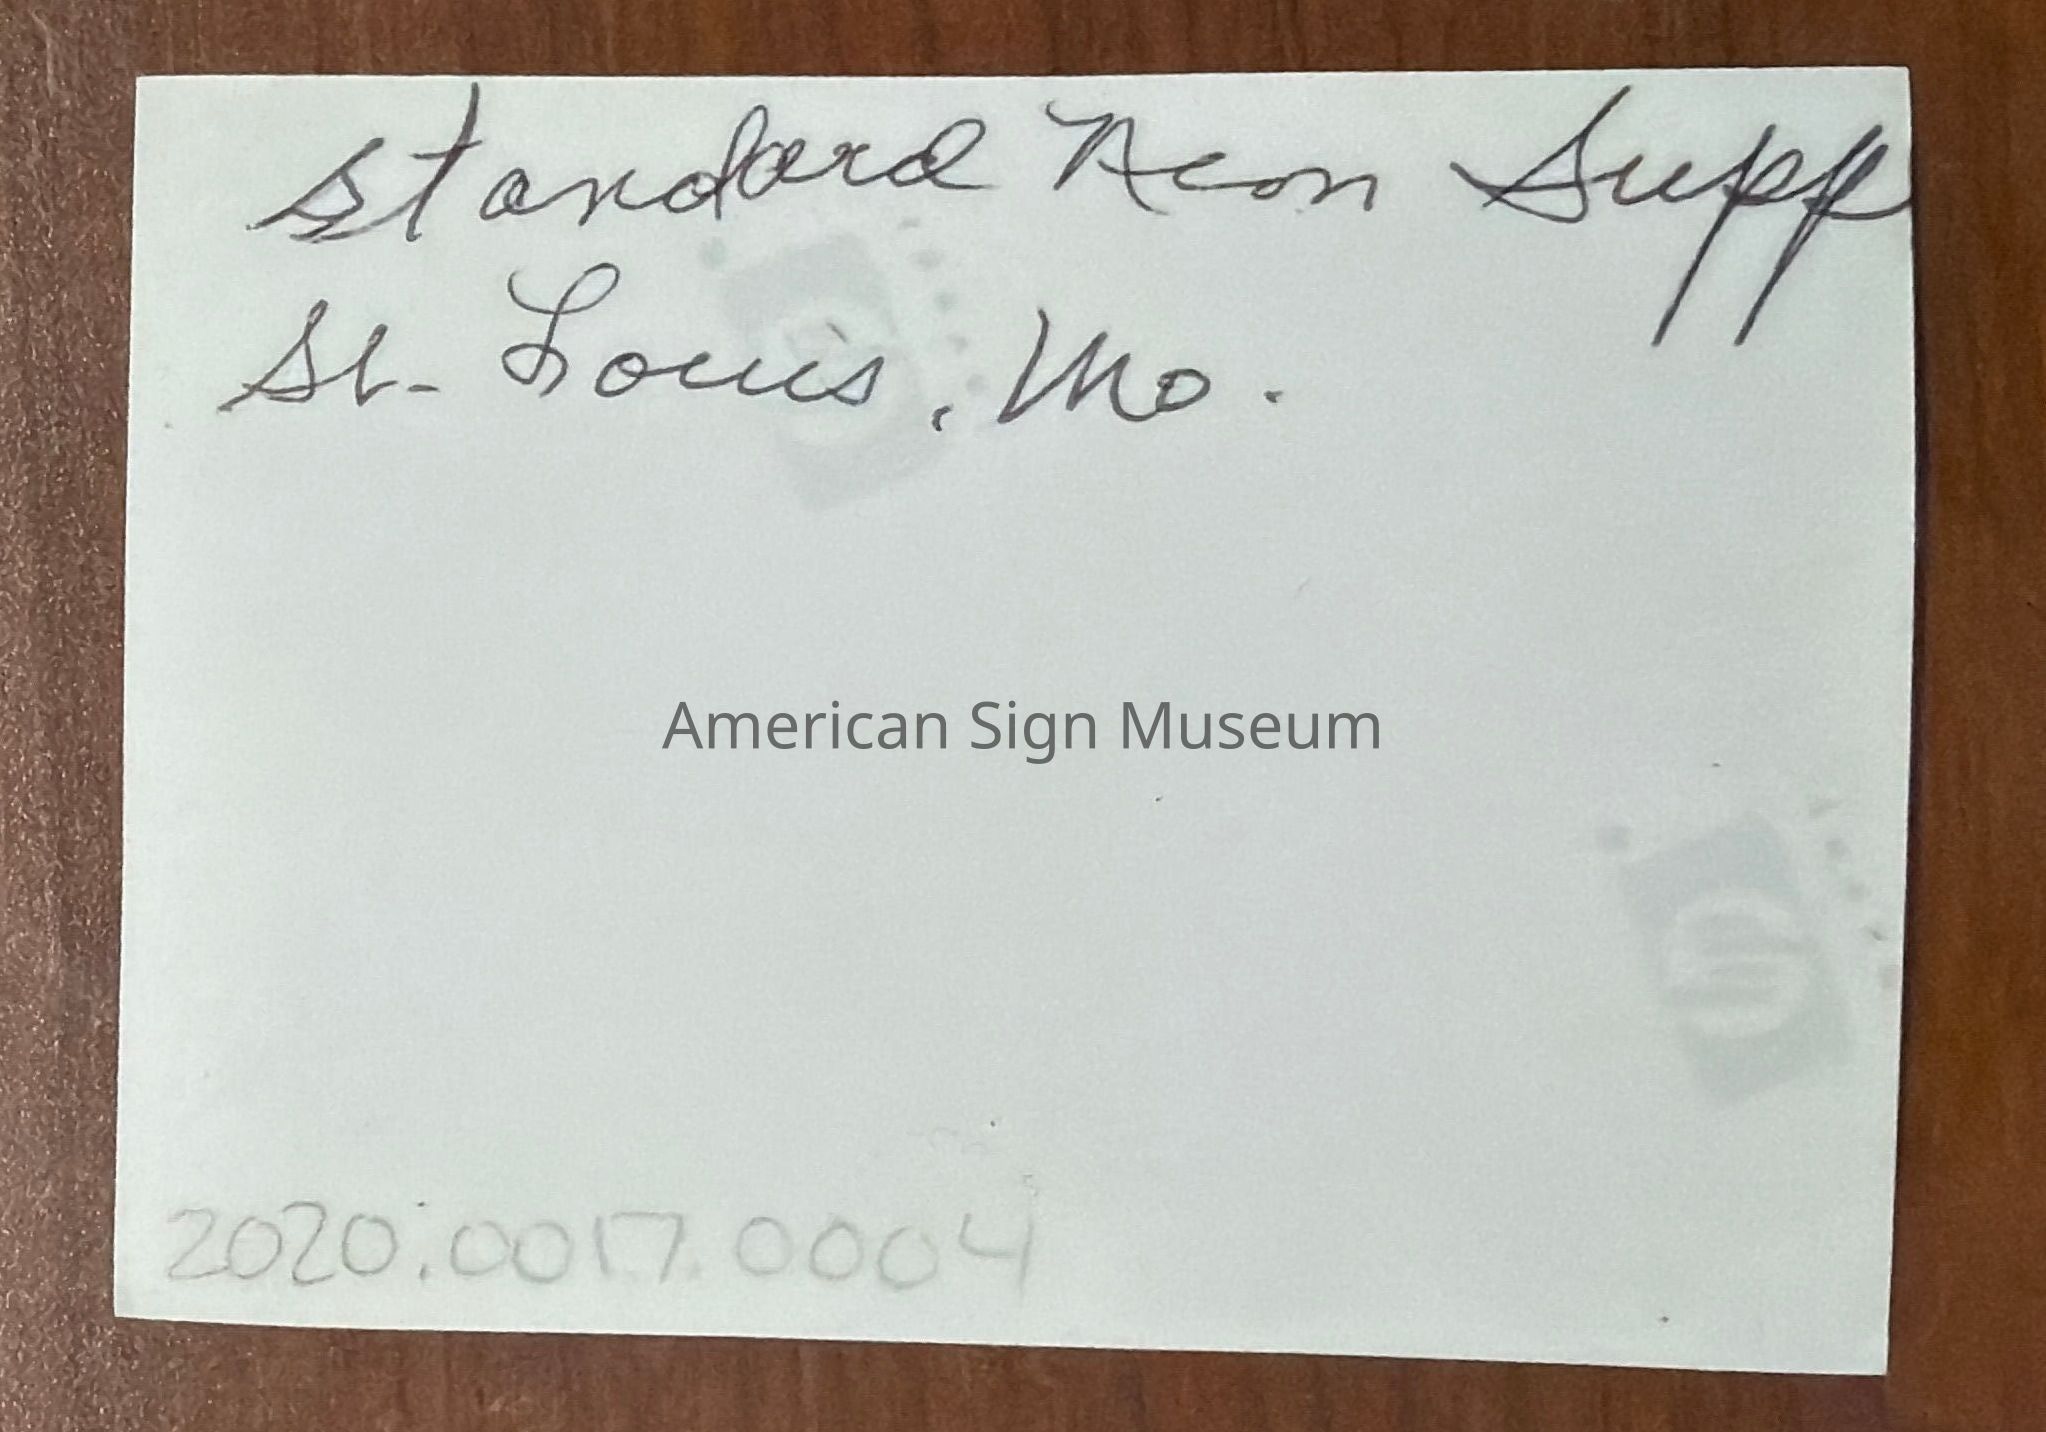 Standard Neon Supp
St. Louis, Mo.
American Sign Museum
2020.0017.0004